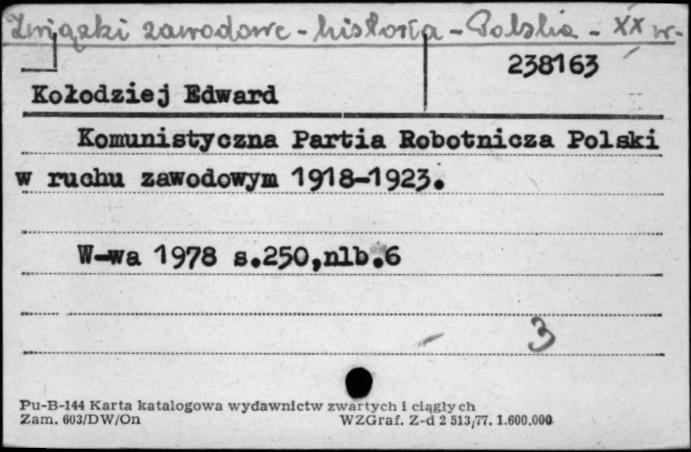 Związki zawodowe - historia - Polska - XX w.
238163
Kołodziej Edward
Komunistyczna Partia Robotnicza Polski
w ruchu zawodowym 1918-1923.
W-wa 1978 s.250,nlb.6
3
Pu-B-144 Karta katalogowa wydawnictw zwartych i ciągłych
Zam. 603/DW/On WZGraf. Z-d 2 513/77. 1.600.000